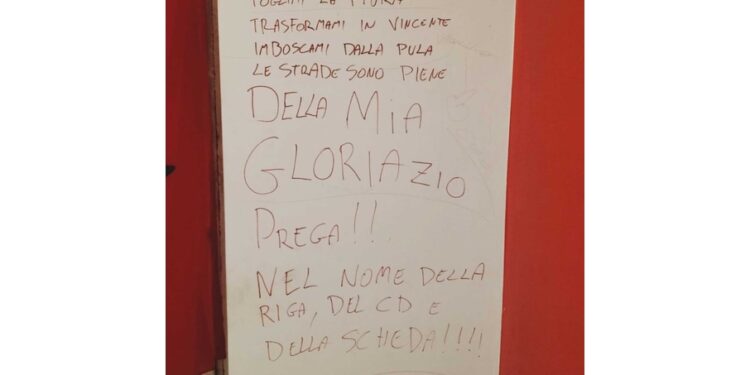 TRASFORMAMI IN VINCENTE
IMBOSCAMI DALLA PULA
LE STRADE SONO PIENE
DELLA MIA
GLORIA ZIO
PREGA!!
NEL NOME DELLA
RIGA, DEL CD E
DELLA SCHEDA!!!!